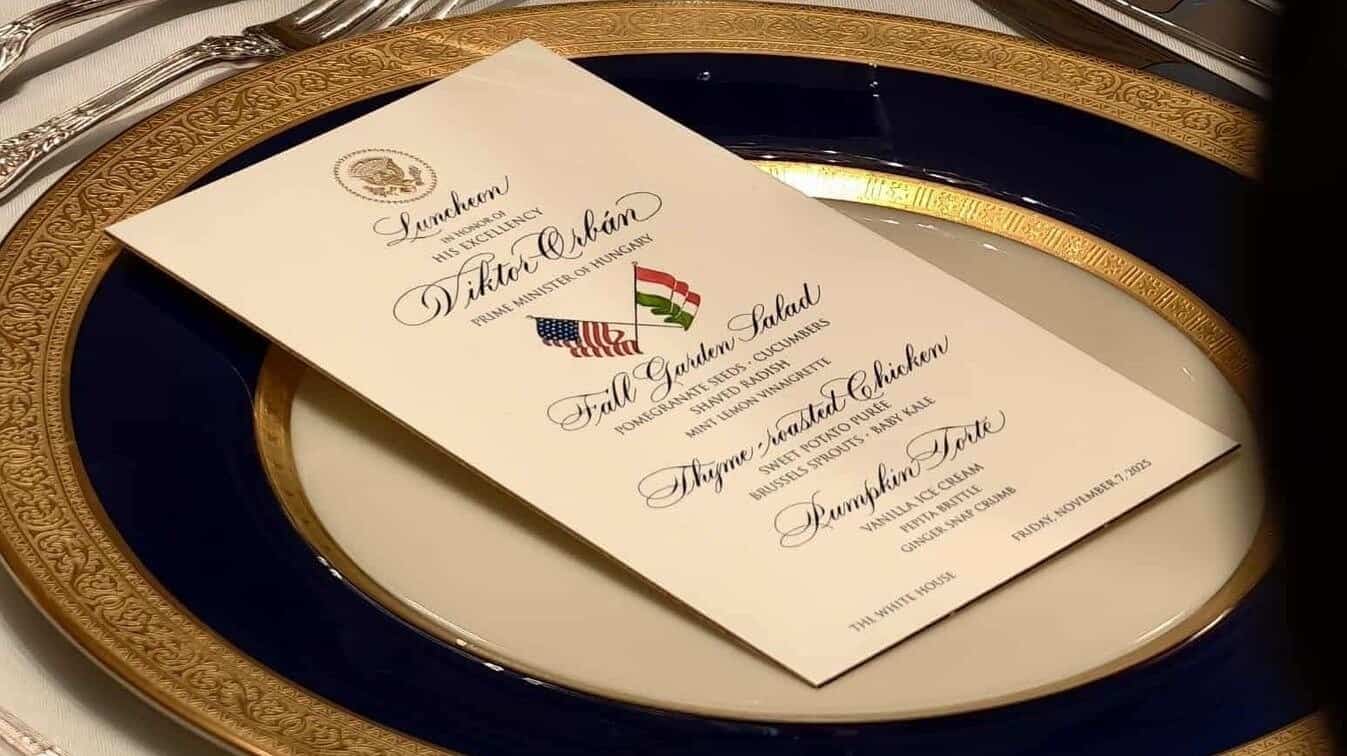 Luncheon
IN HONOR OF
HIS EXCELLENCY
Viktor Orbán
PRIME MINISTER OF HUNGARY
Fall Garden Salad
POMEGRANATE SEEDS · CUCUMBERS
SHAVED RADISH
MINT LEMON VINAIGRETTE
Thyme-roasted Chicken
SWEET POTATO PURÉE
BRUSSELS SPROUTS · BABY KALE
Pumpkin Torté
VANILLA ICE CREAM
PEPITA BRITTLE
GINGER SNAP CRUMB
THE WHITE HOUSE
FRIDAY, NOVEMBER 7, 2025